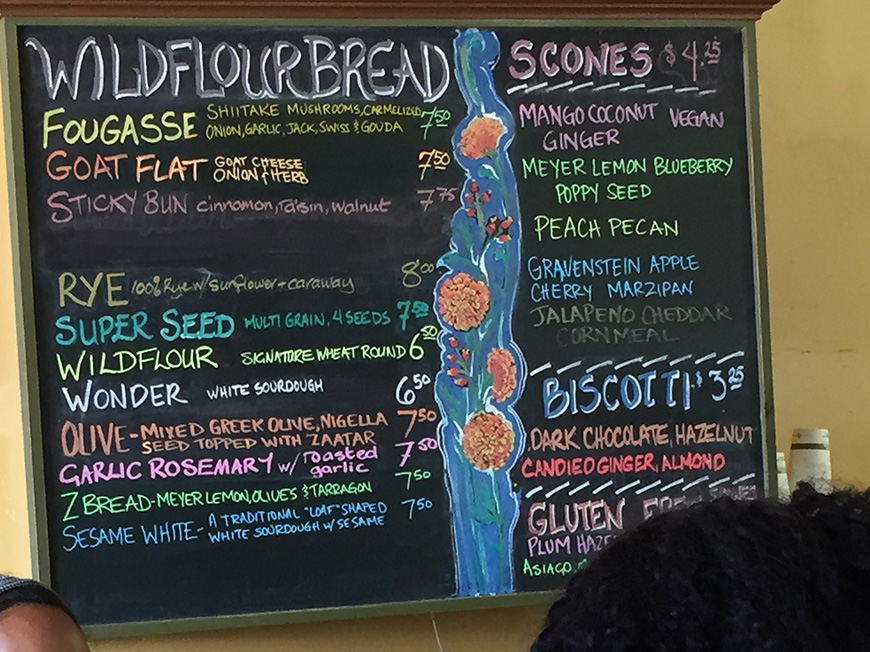 WILDFLOUR BREAD
FOUGASSE SHIITAKE MUSHROOMS, CARMELIZED 7.50
ONION, GARLIC, JACK, SWISS & GOUDA
GOAT FLAT GOAT CHEESE 7.50
ONION & HERB
STICKY BUN cinnamon, raisin, walnut 7.75
RYE 100% Rye w/ sunflower + caraway 8.00
SUPER SEED MULTI GRAIN, 4 SEEDS 7.50
WILDFLOUR SIGNATURE WHEAT ROUND 6.50
WONDER WHITE SOURDOUGH 6.50
OLIVE - MIXED GREEK OLIVE, NIGELLA 7.50
SEED TOPPED WITH ZAATAR
GARLIC ROSEMARY w/ roasted 7.50
garlic
Z BREAD - MEYER LEMON, OLIVES & TARRAGON 7.50
SESAME WHITE - A TRADITIONAL "LOAF" SHAPED 7.50
WHITE SOURDOUGH W/ SESAME
SCONES $4.25
MANGO COCONUT VEGAN
GINGER
MEYER LEMON BLUEBERRY
POPPY SEED
PEACH PECAN
GRAVENSTEIN APPLE
CHERRY MARZIPAN
JALAPENO CHEDDAR
CORNMEAL
BISCOTTI $3.25
DARK CHOCOLATE, HAZELNUT
CANDIED GINGER, ALMOND
GLUTEN
PLUM
ASIAGO